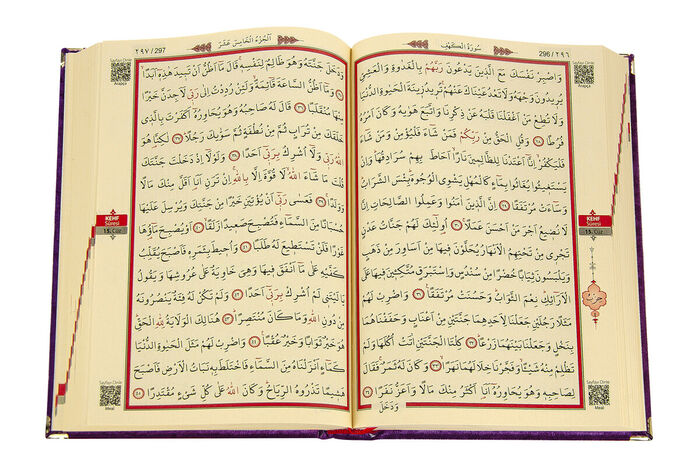 سُورَةُ الْكَهْفِ
296 / ٢٩٦
وَاصْبِرْ نَفْسَكَ مَعَ الَّذِينَ يَدْعُونَ رَبَّهُمْ بِالْغَدٰوةِ وَالْعَشِيِّ
يُرِيدُونَ وَجْهَهُ وَلَا تَعْدُ عَيْنَاكَ عَنْهُمْ تُرِيدُ زِينَةَ الْحَيٰوةِ الدُّنْيَا
وَلَا تُطِعْ مَنْ اَغْفَلْنَا قَلْبَهُ عَنْ ذِكْرِنَا وَاتَّبَعَ هَوٰيهُ وَكَانَ اَمْرُهُ
فُرُطًا ٢٨ وَقُلِ الْحَقُّ مِنْ رَبِّكُمْ فَمَنْ شَٓاءَ فَلْيُؤْمِنْ وَمَنْ شَٓاءَ
فَلْيَكْفُرْ اِنَّٓا اَعْتَدْنَا لِلظَّالِمِينَ نَارًا اَحَاطَ بِهِمْ سُرَادِقُهَا وَاِنْ
يَسْتَغِيثُوا يُغَاثُوا بِمَٓاءٍ كَالْمُهْلِ يَشْوِي الْوُجُوهَ بِئْسَ الشَّرَابُ
وَسَٓاءَتْ مُرْتَفَقًا ٢٩ اِنَّ الَّذِينَ اٰمَنُوا وَعَمِلُوا الصَّالِحَاتِ اِنَّا
لَا نُضِيعُ اَجْرَ مَنْ اَحْسَنَ عَمَلًا ٣٠ اُو۬لٰٓئِكَ لَهُمْ جَنَّاتُ عَدْنٍ
تَجْرِي مِنْ تَحْتِهِمُ الْاَنْهَارُ يُحَلَّوْنَ فِيهَا مِنْ اَسَاوِرَ مِنْ ذَهَبٍ
وَيَلْبَسُونَ ثِيَابًا خُضْرًا مِنْ سُنْدُسٍ وَاِسْتَبْرَقٍ مُتَّكِـِٔينَ فِيهَا عَلَى
الْاَرَٓائِكِ نِعْمَ الثَّوَابُ وَحَسُنَتْ مُرْتَفَقًا ٣١ وَاضْرِبْ لَهُمْ
مَثَلًا رَجُلَيْنِ جَعَلْنَا لِاَحَدِهِمَا جَنَّتَيْنِ مِنْ اَعْنَابٍ وَحَفَفْنَاهُمَا
بِنَخْلٍ وَجَعَلْنَا بَيْنَهُمَا زَرْعًا ٣٢ كِلْتَا الْجَنَّتَيْنِ اٰتَتْ اُكُلَهَا وَلَمْ
تَظْلِمْ مِنْهُ شَيْـًٔا وَفَجَّرْنَا خِلَالَهُمَا نَهَرًا ٣٣ وَكَانَ لَهُ ثَمَرٌ فَقَالَ
لِصَاحِبِهِ وَهُوَ يُحَاوِرُهُٓ اَنَا۬ اَكْثَرُ مِنْكَ مَالًا وَاَعَزُّ نَفَرًا ٣٤
وَدَخَلَ
Sayfayı Dinle
Arapça
KEHF
Sûresi
15. Cüz
حزب
Sayfayı Dinle
Meal
٢٩٧ / 297
اَلْجُزْءُ الْخَامِسَ عَشَرَ
وَدَخَلَ جَنَّتَهُ وَهُوَ ظَالِمٌ لِنَفْسِهِ قَالَ مَٓا اَظُنُّ اَنْ تَبِيدَ هٰذِهِٓ اَبَدًا
٣٥ وَمَٓا اَظُنُّ السَّاعَةَ قَٓائِمَةً وَلَئِنْ رُدِدْتُ اِلٰى رَبِّي لَاَجِدَنَّ خَيْرًا
مِنْهَا مُنْقَلَبًا ٣٦ قَالَ لَهُ صَاحِبُهُ وَهُوَ يُحَاوِرُهُٓ اَكَفَرْتَ بِالَّذِي
خَلَقَكَ مِنْ تُرَابٍ ثُمَّ مِنْ نُطْفَةٍ ثُمَّ سَوّٰيكَ رَجُلًا ٣٧ لٰكِنَّا۬ هُوَ
اللّٰهُ رَبِّي وَلَٓا اُشْرِكُ بِرَبِّٓي اَحَدًا ٣٨ وَلَوْلَٓا اِذْ دَخَلْتَ جَنَّتَكَ
قُلْتَ مَا شَٓاءَ اللّٰهُ لَا قُوَّةَ اِلَّا بِاللّٰهِ اِنْ تَرَنِ اَنَا۬ اَقَلَّ مِنْكَ مَالًا
وَوَلَدًا ٣٩ فَعَسٰى رَبِّٓي اَنْ يُؤْتِيَنِ خَيْرًا مِنْ جَنَّتِكَ وَيُرْسِلَ عَلَيْهَا
حُسْبَانًا مِنَ السَّمَٓاءِ فَتُصْبِحَ صَعِيدًا زَلَقًا ٤٠ اَوْ يُصْبِحَ مَٓاؤُ۬هَا
غَوْرًا فَلَنْ تَسْتَطِيعَ لَهُ طَلَبًا ٤١ وَاُحِيطَ بِثَمَرِهِ فَاَصْبَحَ يُقَلِّبُ
كَفَّيْهِ عَلٰى مَٓا اَنْفَقَ فِيهَا وَهِيَ خَاوِيَةٌ عَلٰى عُرُوشِهَا وَيَقُولُ
يَا لَيْتَنِي لَمْ اُشْرِكْ بِرَبِّٓي اَحَدًا ٤٢ وَلَمْ تَكُنْ لَهُ فِئَةٌ يَنْصُرُونَهُ
مِنْ دُونِ اللّٰهِ وَمَا كَانَ مُنْتَصِرًا ٤٣ هُنَالِكَ الْوَلَايَةُ لِلّٰهِ الْحَقِّ
هُوَ خَيْرٌ ثَوَابًا وَخَيْرٌ عُقْبًا ٤٤ وَاضْرِبْ لَهُمْ مَثَلَ الْحَيٰوةِ الدُّنْيَا
كَمَٓاءٍ اَنْزَلْنَاهُ مِنَ السَّمَٓاءِ فَاخْتَلَطَ بِهِ نَبَاتُ الْاَرْضِ فَاَصْبَحَ
هَشِيمًا تَذْرُوهُ الرِّيَاحُ وَكَانَ اللّٰهُ عَلٰى كُلِّ شَيْءٍ مُقْتَدِرًا ٤٥
Sayfayı Dinle
Arapça
KEHF
Sûresi
15. Cüz
Sayfayı Dinle
Meal